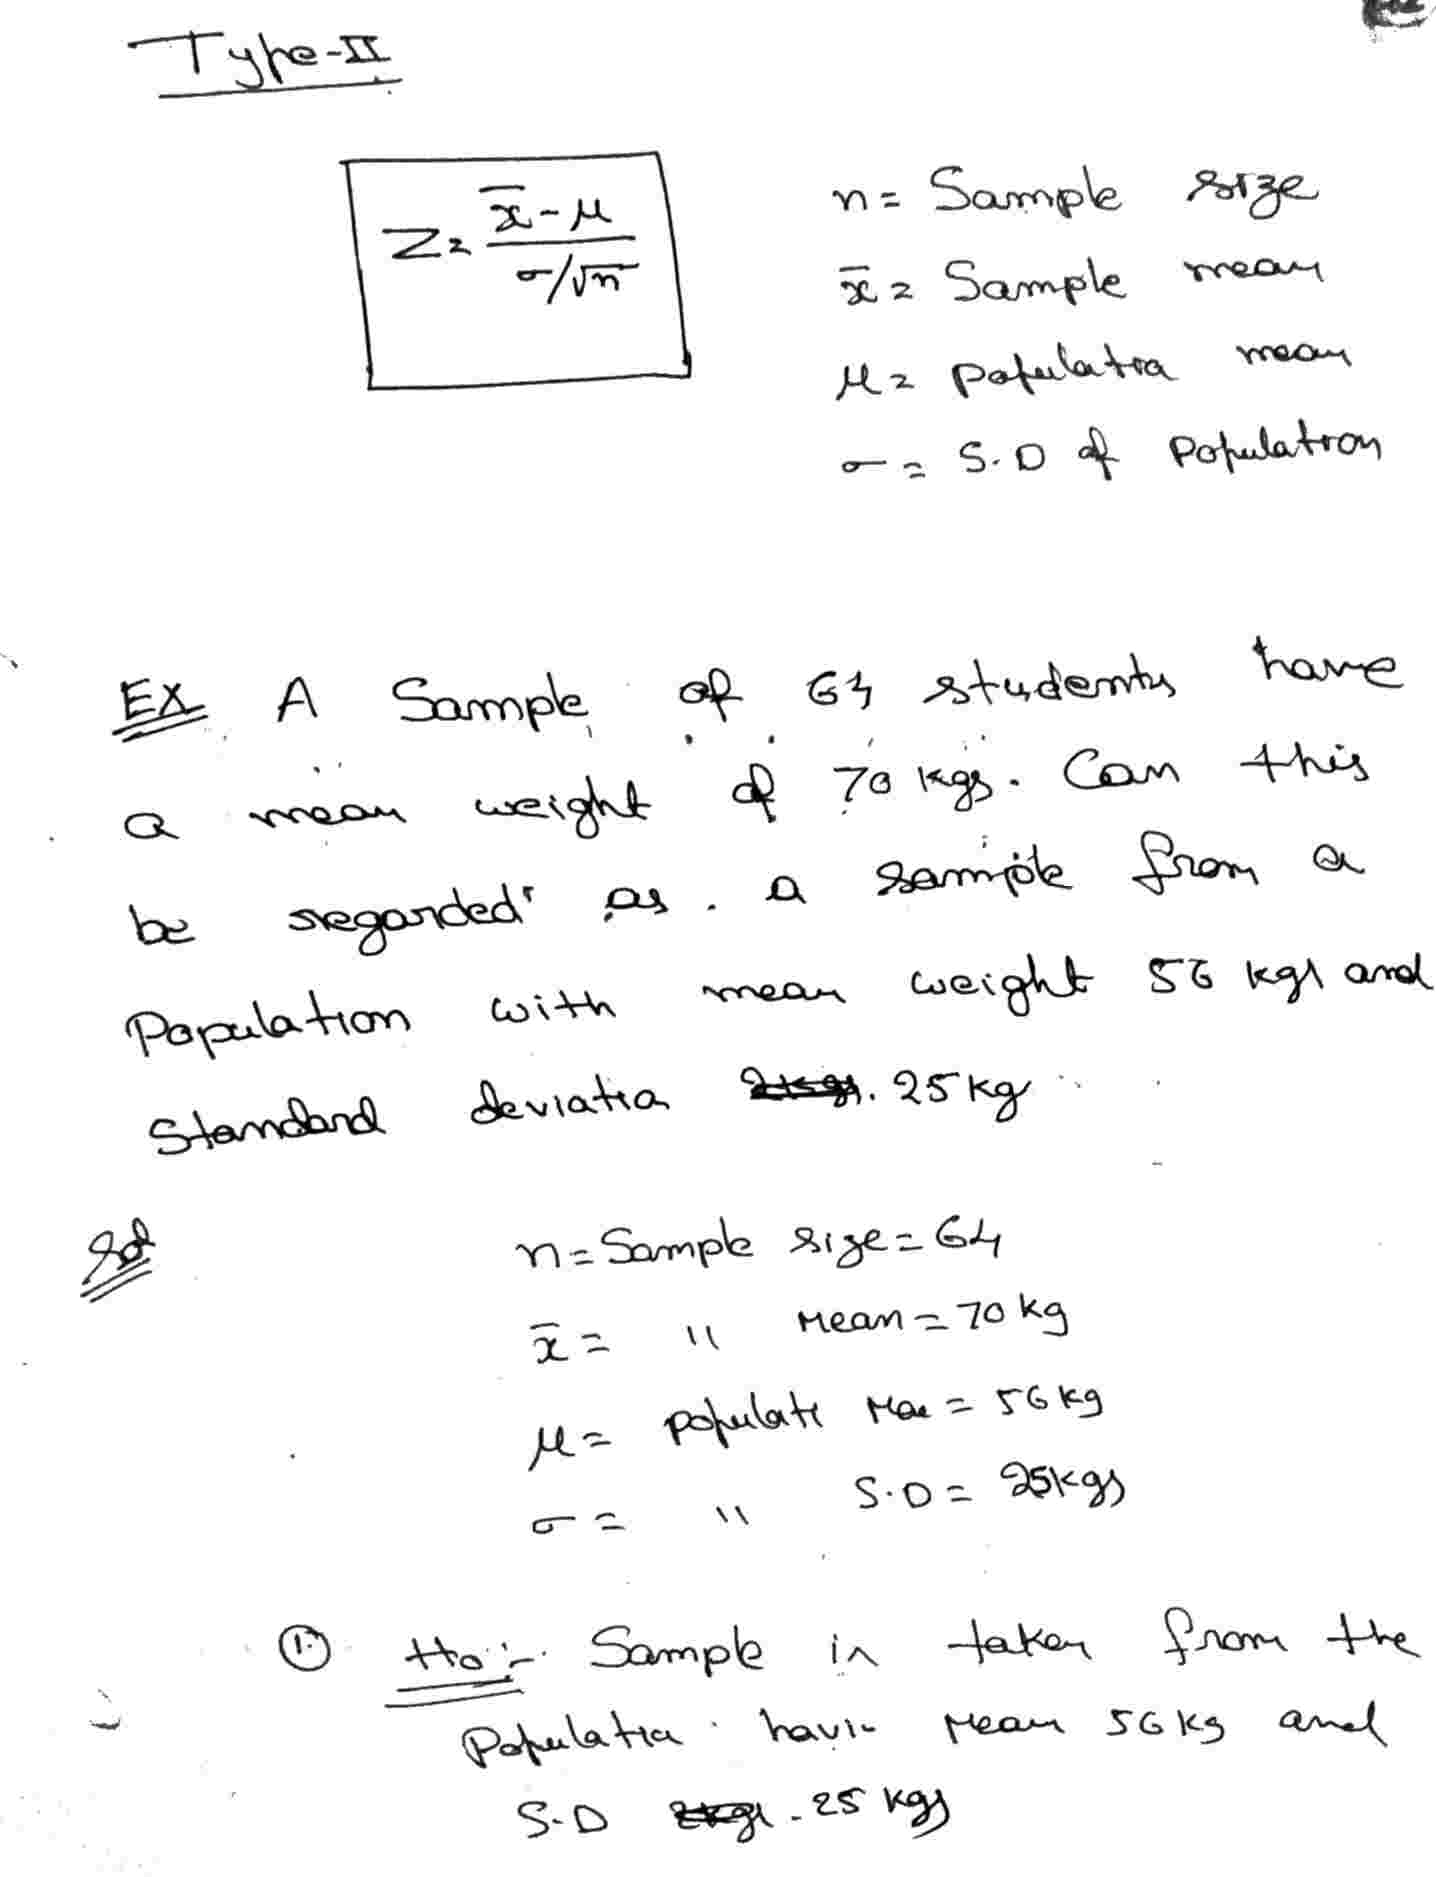 Type-II
Z = x̄ - μ / σ/√n
n = Sample size
x̄ = Sample mean
μ = Populatia mean
σ = S.D of Population
EX A Sample of 64 students have
a mean weight of 70 kgs. Can this
be regarded as a sample from a
Population with mean weight 56 kgs and
Standard deviatia 25 kg
Sol
n = Sample size = 64
x̄ = " Mean = 70 kg
μ = populati = 56 kg
σ = " S.D = 25 kgs
① Ho :- Sample in taken from the
Populatia havin Mean 56 kg and
S.D 25 kgs